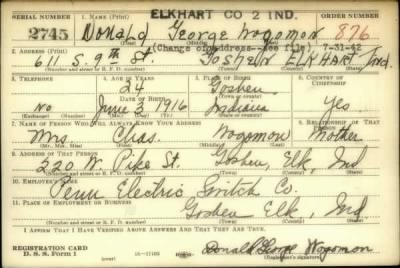 ELKHART CO 2 IND.
SERIAL NUMBER 1. NAME (Print) ORDER NUMBER
2745 Donald George Wogomon 876
(First) (Middle) (Last)
2. ADDRESS (Print) (Change of address--See file) 7-31-42
611 S. 9th St. GOSHEN ELKHART Ind.
(Number and street or R. F. D. number) (Town) (County) (State)
3. TELEPHONE 4. AGE IN YEARS 5. PLACE OF BIRTH 6. COUNTRY OF CITIZENSHIP
24 Goshen
DATE OF BIRTH (Town or county)
No June 2 1916 Indiana Yes
(Exchange) (Number) (Mo.) (Day) (Yr.) (State or country)
7. NAME OF PERSON WHO WILL ALWAYS KNOW YOUR ADDRESS 8. RELATIONSHIP OF THAT PERSON
Mrs. Chas. Wogomon Mother
(Mr., Mrs., Miss) (First) (Middle) (Last)
9. ADDRESS OF THAT PERSON
220 W. Pike St. Goshen, Elk, Ind
(Number and street or R. F. D. number) (Town) (County) (State)
10. EMPLOYER'S NAME
Penn Electric Switch Co.
11. PLACE OF EMPLOYMENT OR BUSINESS
Goshen Elk, Ind.
(Number and street or R. F. D. number) (Town) (County) (State)
I AFFIRM THAT I HAVE VERIFIED ABOVE ANSWERS AND THAT THEY ARE TRUE.
REGISTRATION CARD
D. S. S. Form 1 16-17105 Donald George Wogomon
(Registrant's signature)